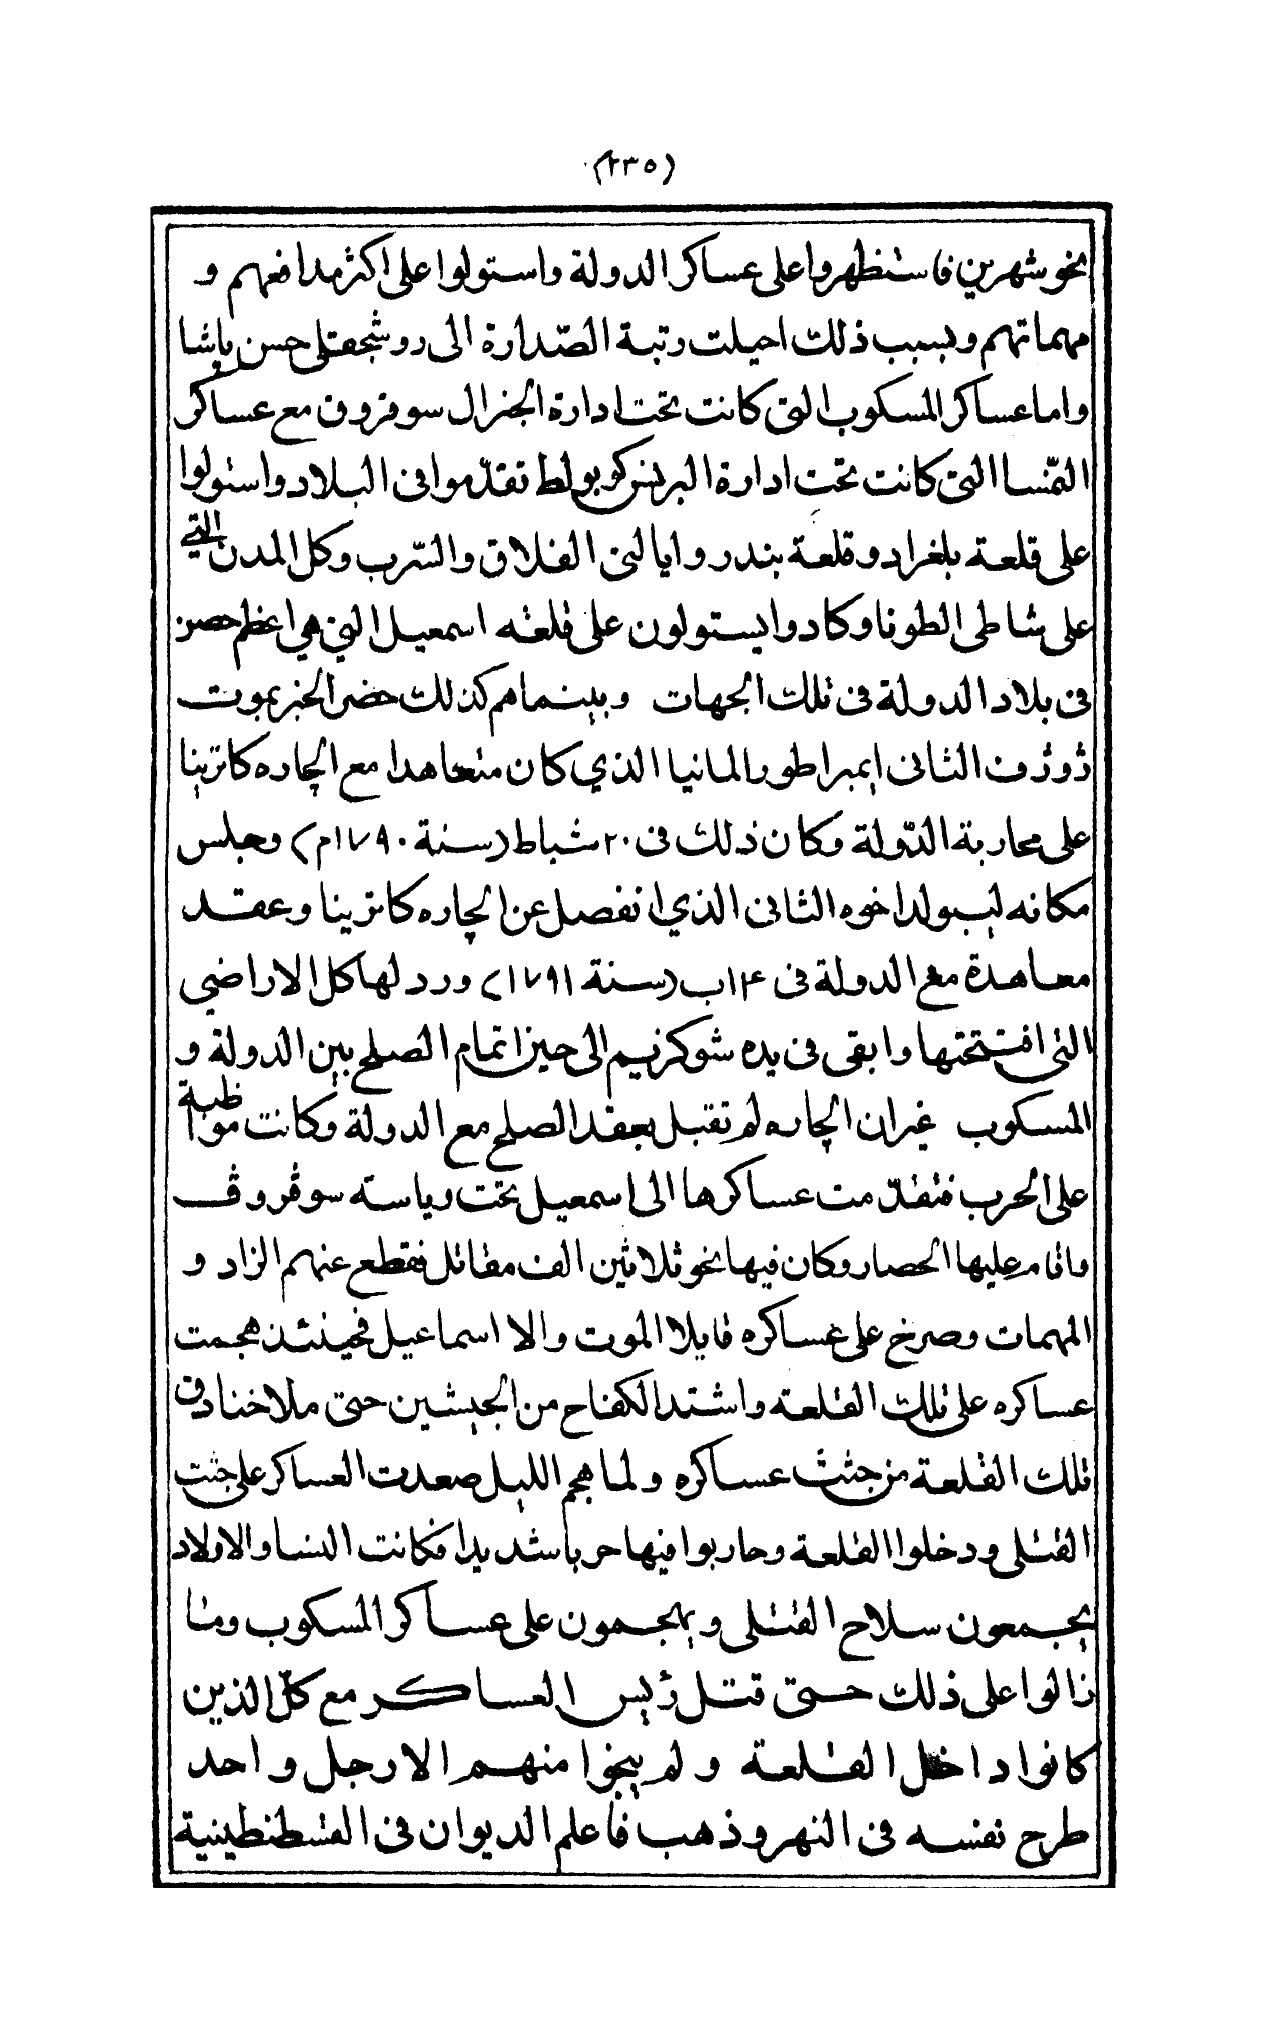 (٢٣٥)
بنحو شهرين فاستظهروا على عساكر الدولة واستولوا على اكثر مدافعهم و
مهماتهم وبسبب ذلك احيلت رتبة الصّدارة الى روشجقلى حسن پاشا
واما عساكر المسكوب التى كانت تحت ادارة الجنرال سوفروف مع عساكر
النمّسا التى كانت تحت ادارة البرنس كوبولط تقدّموا فى البلاد واستولوا
على قلعة بلغراد وقلعة بندر وايالتى الفلاق والسّرب وكل المدن التي
على شاطى الطونا وكادوا يستولون على قلعة اسمعيل التي هي اعظم حصن
فى بلاد الدولة فى تلك الجهات وبينما هم كذلك حضر الخبر بموت
ژوژف الثانى ايمبراطور المانيا الذي كان متعاهدا مع الچاره كاترينا
على محاربة الدّولة وكان ذلك فى ٢٠ شباط (سنة ١٧٩٠م) وجلس
مكانه ليبولد اخوه الثانى الذي انفصل عن الچاره كاترينا وعقد
معاهدة مع الدولة فى ١٤ اب (سنة ١٧٩١) ورد لها كل الاراضي
التى افتتحتها وابقى فى يده شوكزيم الى حين اتمام الصلح بين الدولة و
المسكوب غير ان الچاره لم تقبل بعقد الصلح مع الدولة وكانت مواظبة
على الحرب فتقدّمت عساكرها الى اسمعيل تحت رياسته سوڤروڤ
واقام عليها الحصار وكان فيها نحو ثلاثين الف مقاتل فقطع عنهم الزاد و
المهمات وصرخ على عساكره قايلا الموت والا اسماعيل فحينئذ هجمت
عساكره على تلك القلعة واشتد الكفاح من الجيشين حتى ملا خنادق
تلك القلعة من جثث عساكره ولما هجم الليل صعدت العساكر على جثت
القتلى ودخلوا القلعة وحاربوا فيها حربا شديدا فكانت النسا والاولاد
يجمعون سلاح القتلى ويهجمون على عساكر المسكوب وما
زالوا على ذلك حتى قتل رئيس العساكر مع كلّ الذين
كانوا داخل القلعة ولم ينجوا منهم الا رجل واحد
طرح نفسه فى النهر وذهب فأعلم الديوان فى القسطنطينية